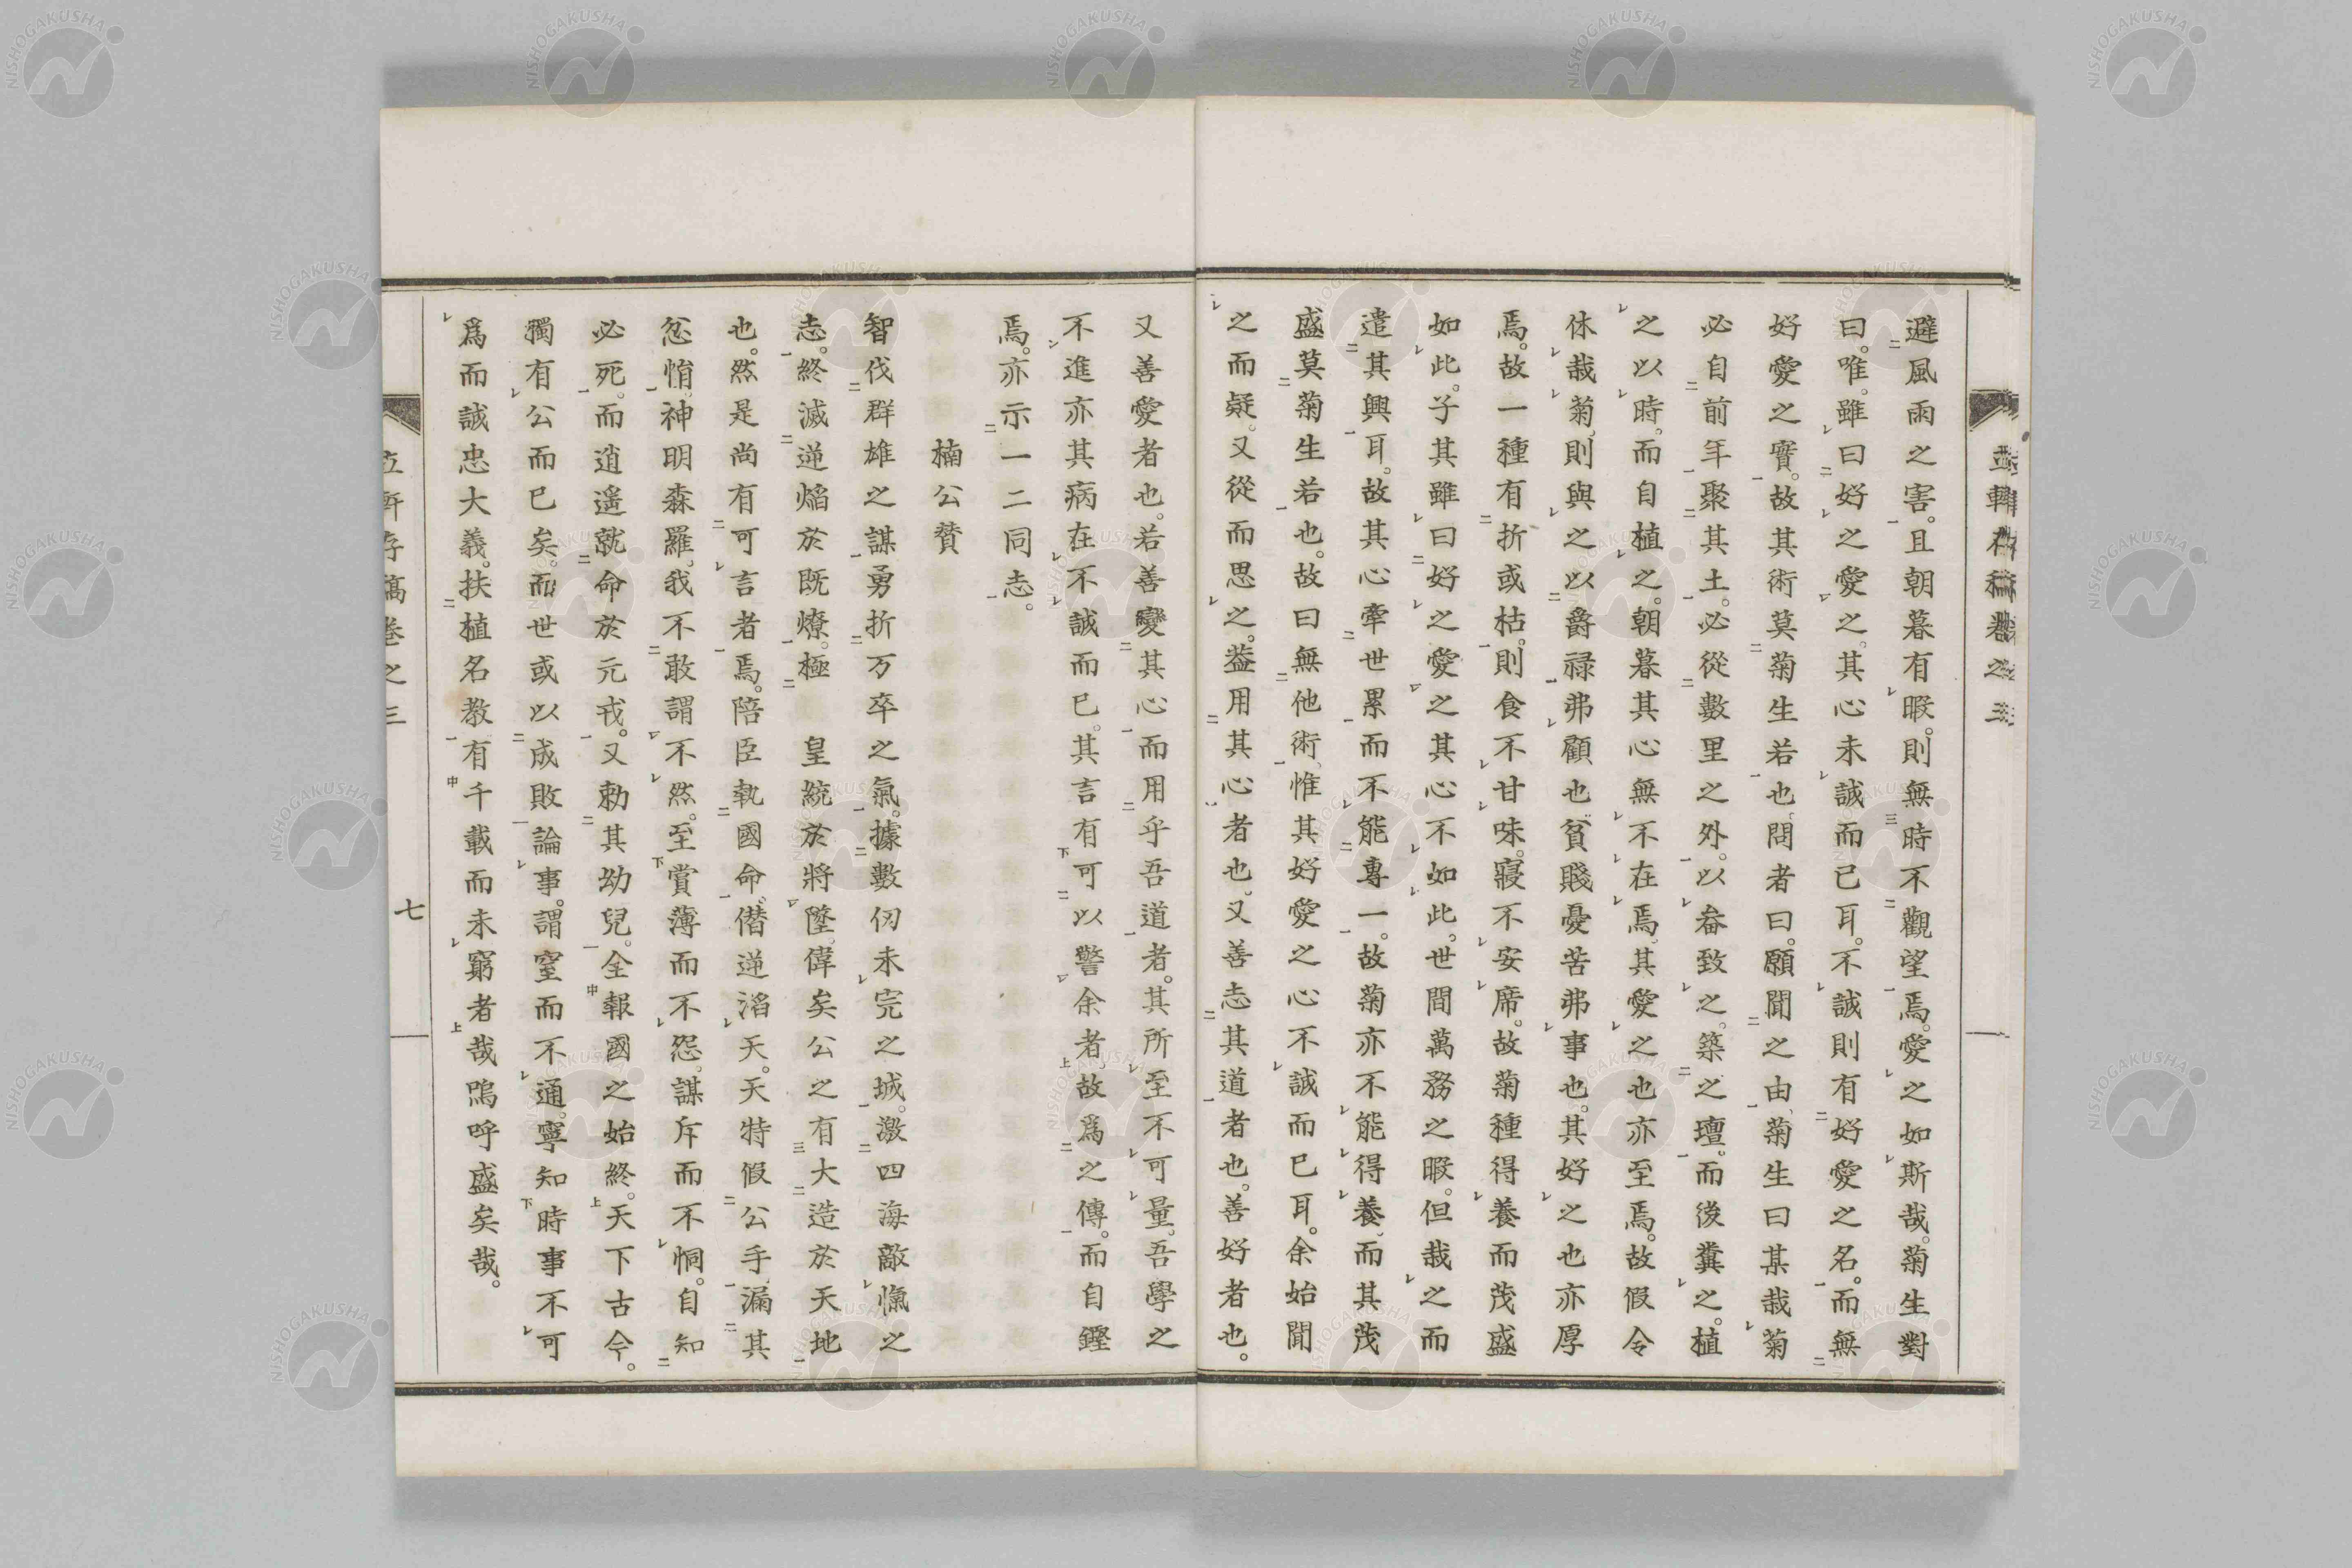 避風雨之害。且朝暮有暇。則無時不觀望焉。愛之如斯哉。菊生對
曰。唯。雖曰好之愛之。其心未誠而已耳。不誠則有好愛之名。而無
好愛之實。故其術莫菊生若也。問者曰。願聞之由。菊生曰某栽菊
必自前年聚其土。必從數里之外。以畚致之。築之壇。而後糞之。植
之以時。而自植之。朝暮其心無不在焉。其愛之也亦至焉。故假令
休哉菊。則與之以爵祿弗顧也。貧賤憂苦弗事也。其好之也亦厚
焉。故一種有折或枯。則食不甘味。寢不安席。故菊種得養而茂盛
如此。子其雖曰好之愛之其心不如此。世間萬務之暇。但栽之而
遣其興耳。故其心牽世累而不能專一。故菊亦不能得養。而其茂
盛莫菊生若也。故曰無他術。惟其好愛之心不誠而已耳。余始聞
之而疑。又從而思之。益用其心者也。又善志其道者也。善好者也。
又善愛者也。若善變其心而用乎吾道者。其所至不可量。吾學之
不進亦其病在不誠而已。其言有可以警余者。故爲之傳。而自鏗
焉。亦示一二同志。
楠公贊
智伐群雄之謀。勇折万卒之氣。據數仞未完之城。激四海敵愾之
志。終滅逆熖於既燎。極 皇統於將墜。偉矣公之有大造於天地
也。然是尚有可言者焉。陪臣執國命。僭逆滔天。天特假公手。漏其
忿悁。神明森羅。我不敢謂不然。至賞薄而不怨。謀斥而不恫。自知
必死。而逍遙就命於元戎。又勅其幼兒。全報國之始終。天下古今。
獨有公而已矣。而世或以成敗論事。謂窒而不通。寧知時事不可
爲而誠忠大義。扶植名教有千載而未窮者哉嗚呼盛矣哉。
七